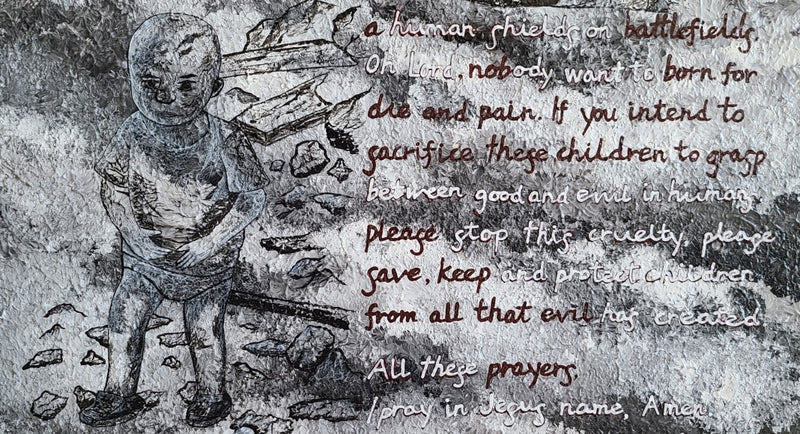 a human shields on battlefields.
Oh Lord, nobody want to born for
die and pain. If you intend to
sacrifice these children to grasp
between good and evil in human,
please stop this cruelty, please
save, keep and protect children
from all that evil has created
All these prayers,
I pray in Jesus name, Amen.